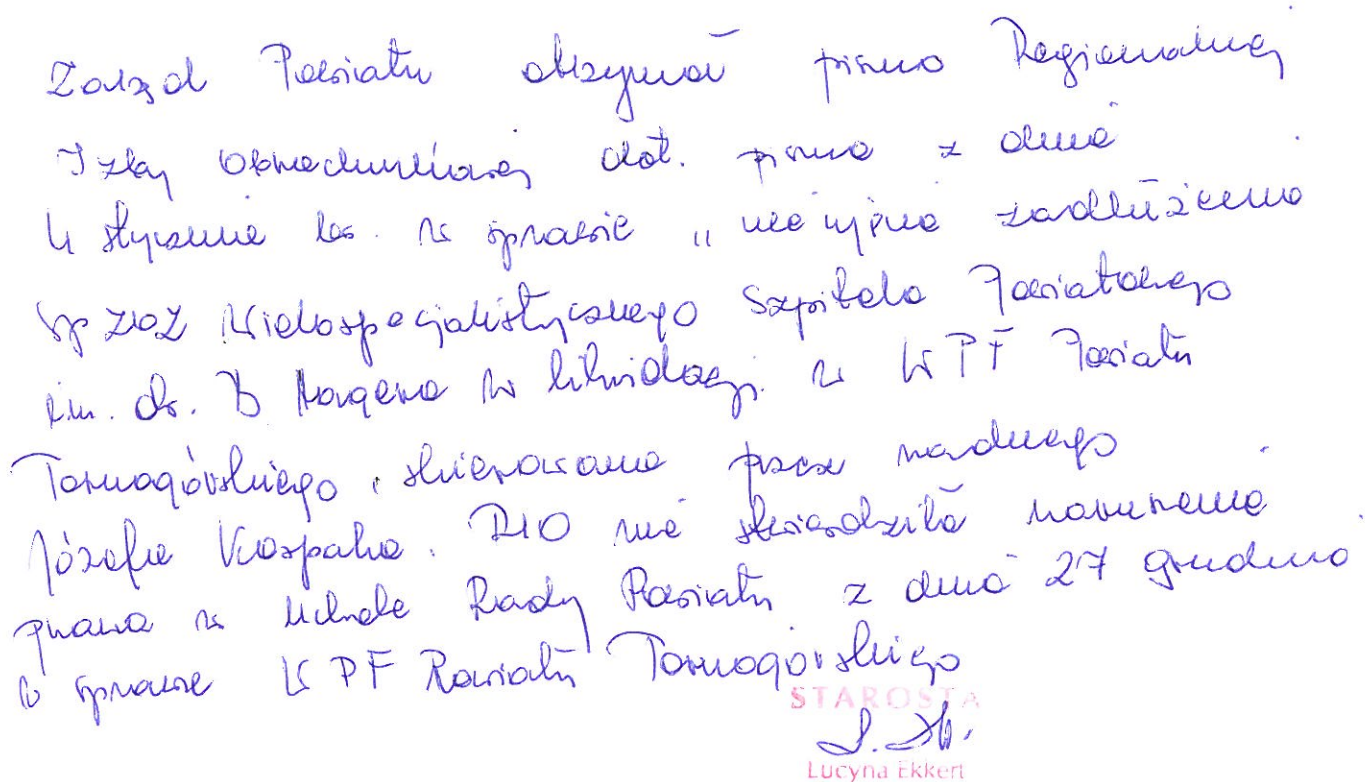 Zarząd Powiatu otrzymał pismo Regionalnej
Izby Obrachunkowej dot. pisma z dnia
4 stycznia br. w sprawie „nie ujęcia zadłużenia
Sp ZOZ Wielospecjalistycznego Szpitala Powiatowego
im. dr. B Hagera w likwidacji w WPF Powiatu
Tarnogórskiego, skierowane przez radnego
Józefa Kaspaha. RIO nie stwierdziła naruszenia
prawa w Uchwale Rady Powiatu z dnia 27 grudnia
w sprawie WPF Powiatu Tarnogórskiego
STAROSTA
Lucyna Ekkert